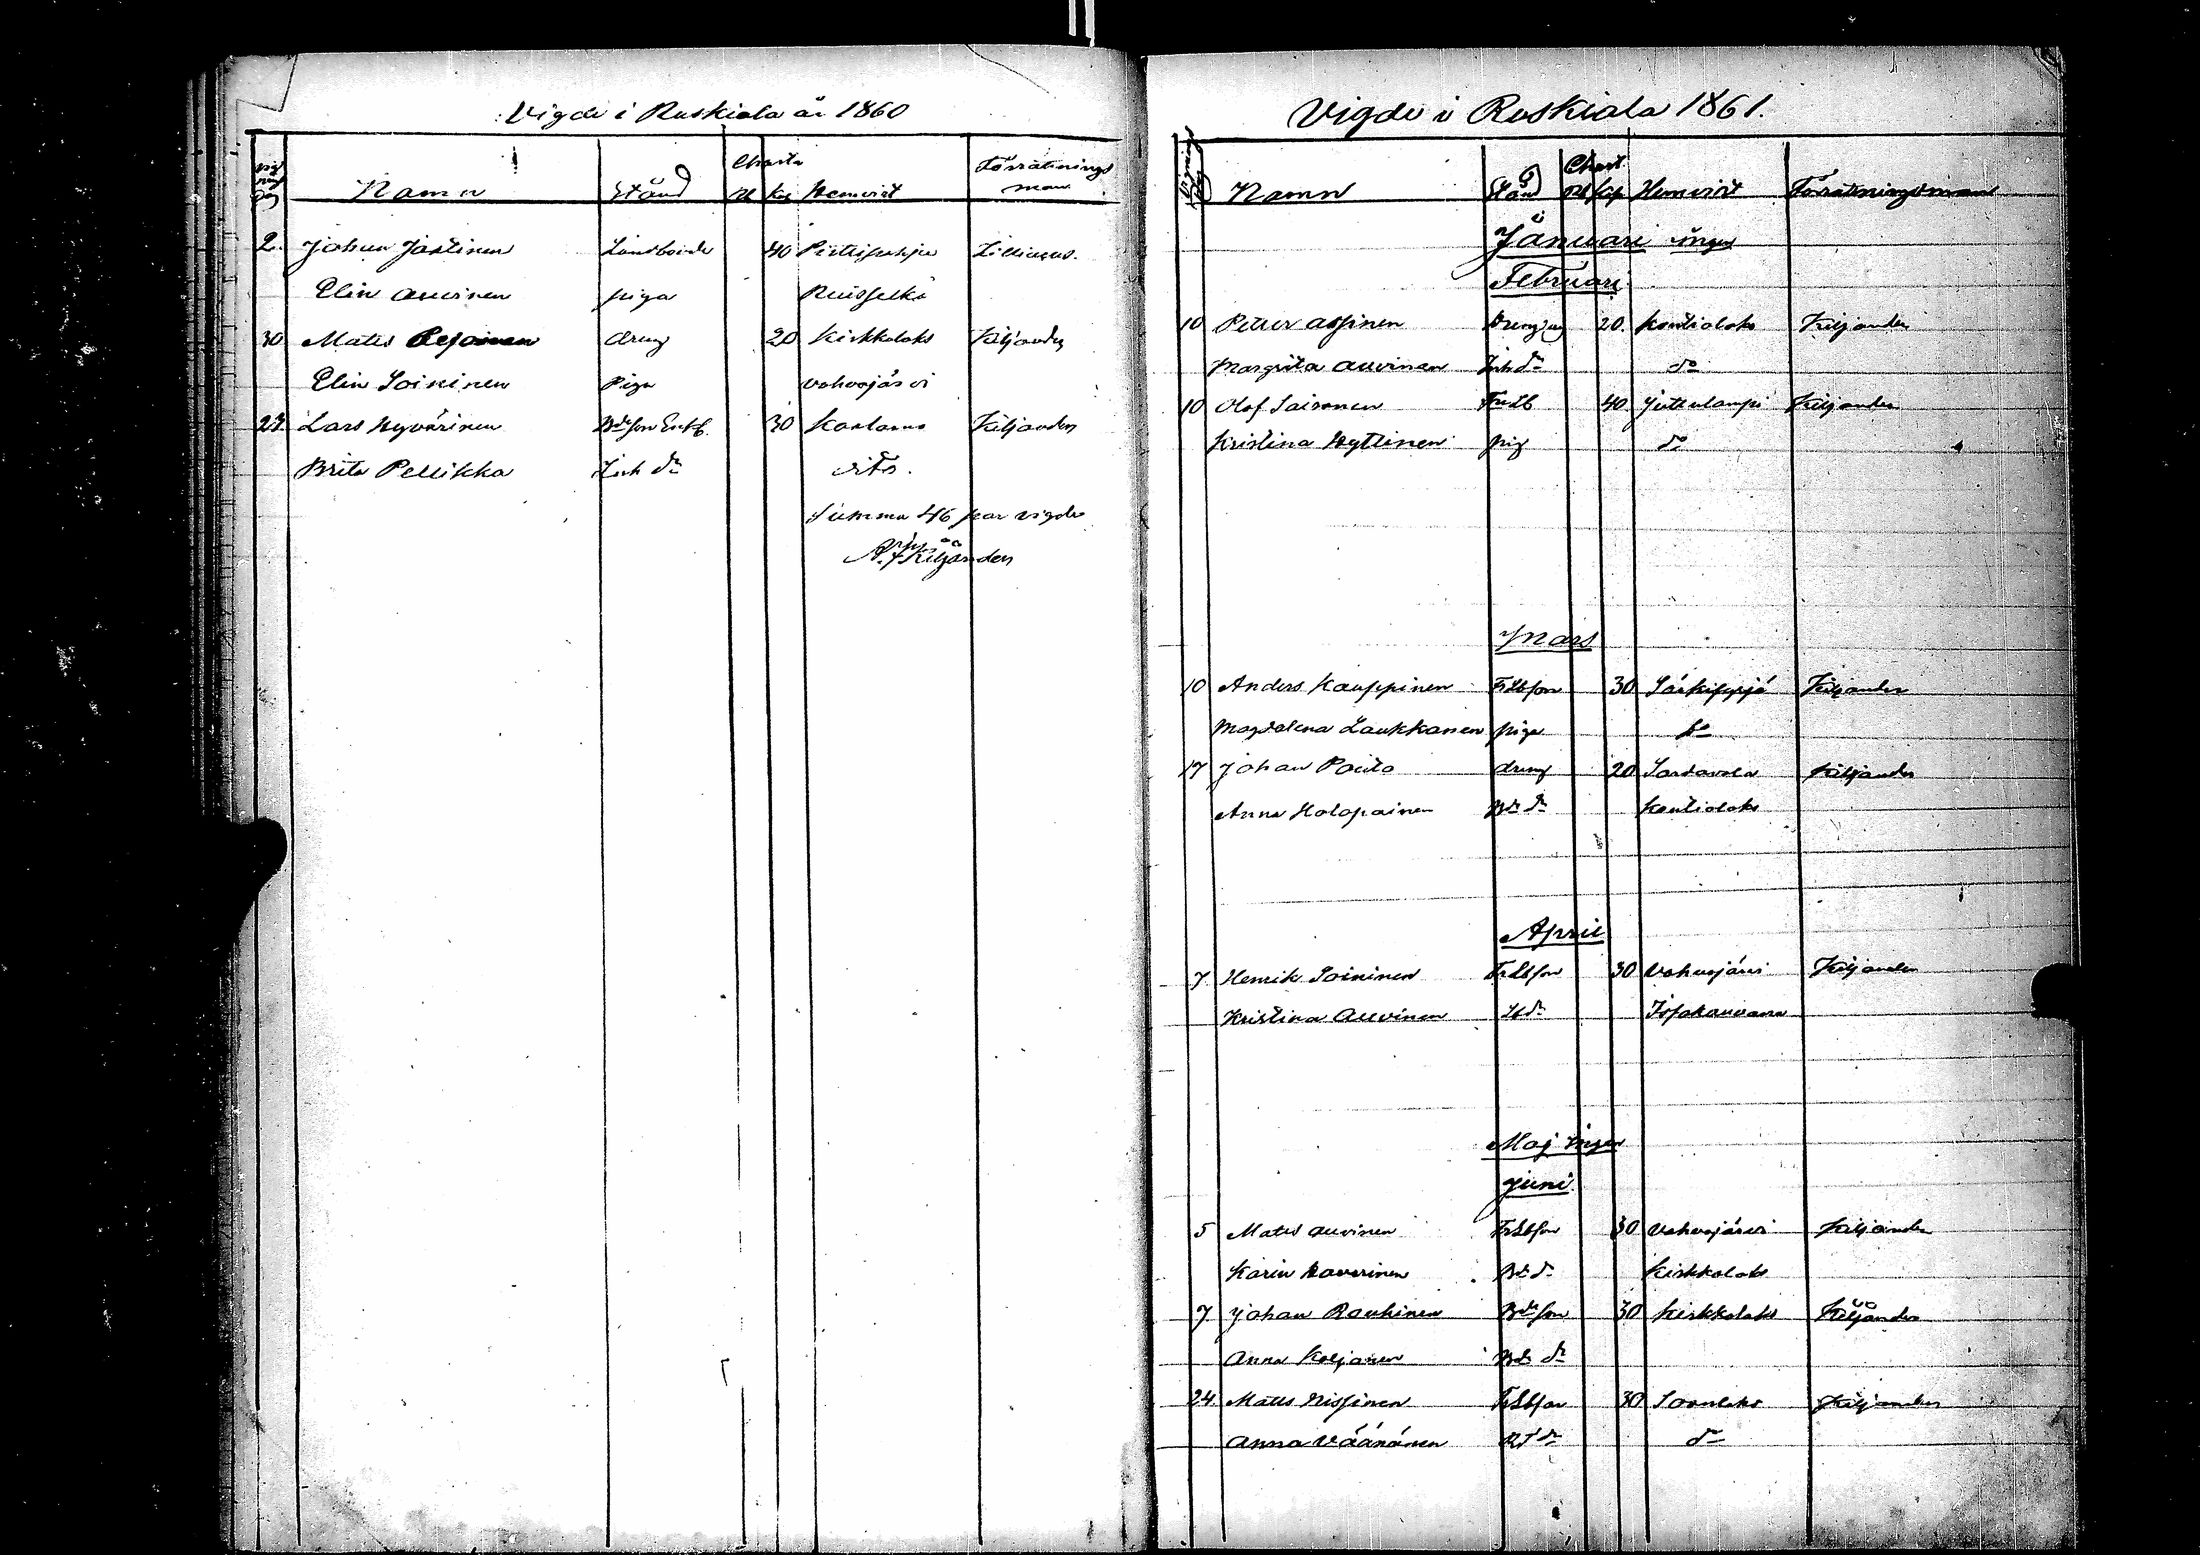 Vigde i Ruskiala år 1860
Namn Stånd Charta Rb Kop Hemvist Förrättnings man
2. Johan Jäntinen Landbonde 40 Lilliaeus.
Elin Auvinen piga Ruisselkä
30 Matts dreng 20 Kirkkolaks Kiljander
Elin Soininen Piga Vahvajärvi
27. Lars Hyvärinen 30 Kiljander
Brita Pellikka dito.
Summa 46 par vigde
Kiljander
Vigde i Ruskiala 1861.
Vignings dag Namn Stånd Chart Rb Kop Hemvist Förrättningsman
Januari inga
Februari
10 Petter Assinen Dreng 20. Kontiolaks Kiljander
Margreta Auvinen Inh dr do
10 Olof Saironen 40. Juttulampi Kiljander
Kristina Hyttinen pig do
Mars
10 Anders Kauppinen FrLbson 30 Särkisyrjä Kiljander
Magdalena Laukkanen piga do
17 Johan dreng 20 Sordavala Kiljander
Anna Holopainen Bde dr Kontiolaks
April
7. Henrik Soininen FrLbson 30 Vahvajärvi Kiljander
Kristina Auvinen Lb dr
Maj inga
Juni.
5 Matts Auvinen FrLbson 30 Vahvajärvi Kiljander
Karin Haverinen Bde dr Kirkkolaks
7. Johan Rouhinen Bde son 30 Kirkkolaks Kiljander
Anna Koljonen Bde dr
24. Matts Nissinen FrLbson 30 Soanlaks Kiljander
Anna Väänänen do